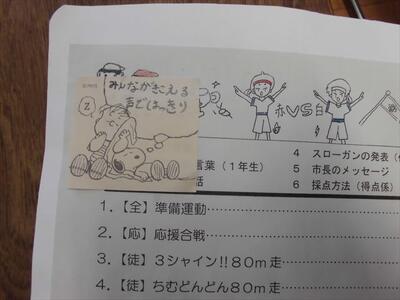 みんながきこえる
声ではっきり
Z
赤VS白
4 スローガンの発表
言葉（1年生）
5 市長のメッセージ
話
6 採点方法（得点係）
1．【全】準備運動
2．【応】応援合戦
3．【徒】3シャイン!!80m走
4．【徒】ちむどんどん80m走